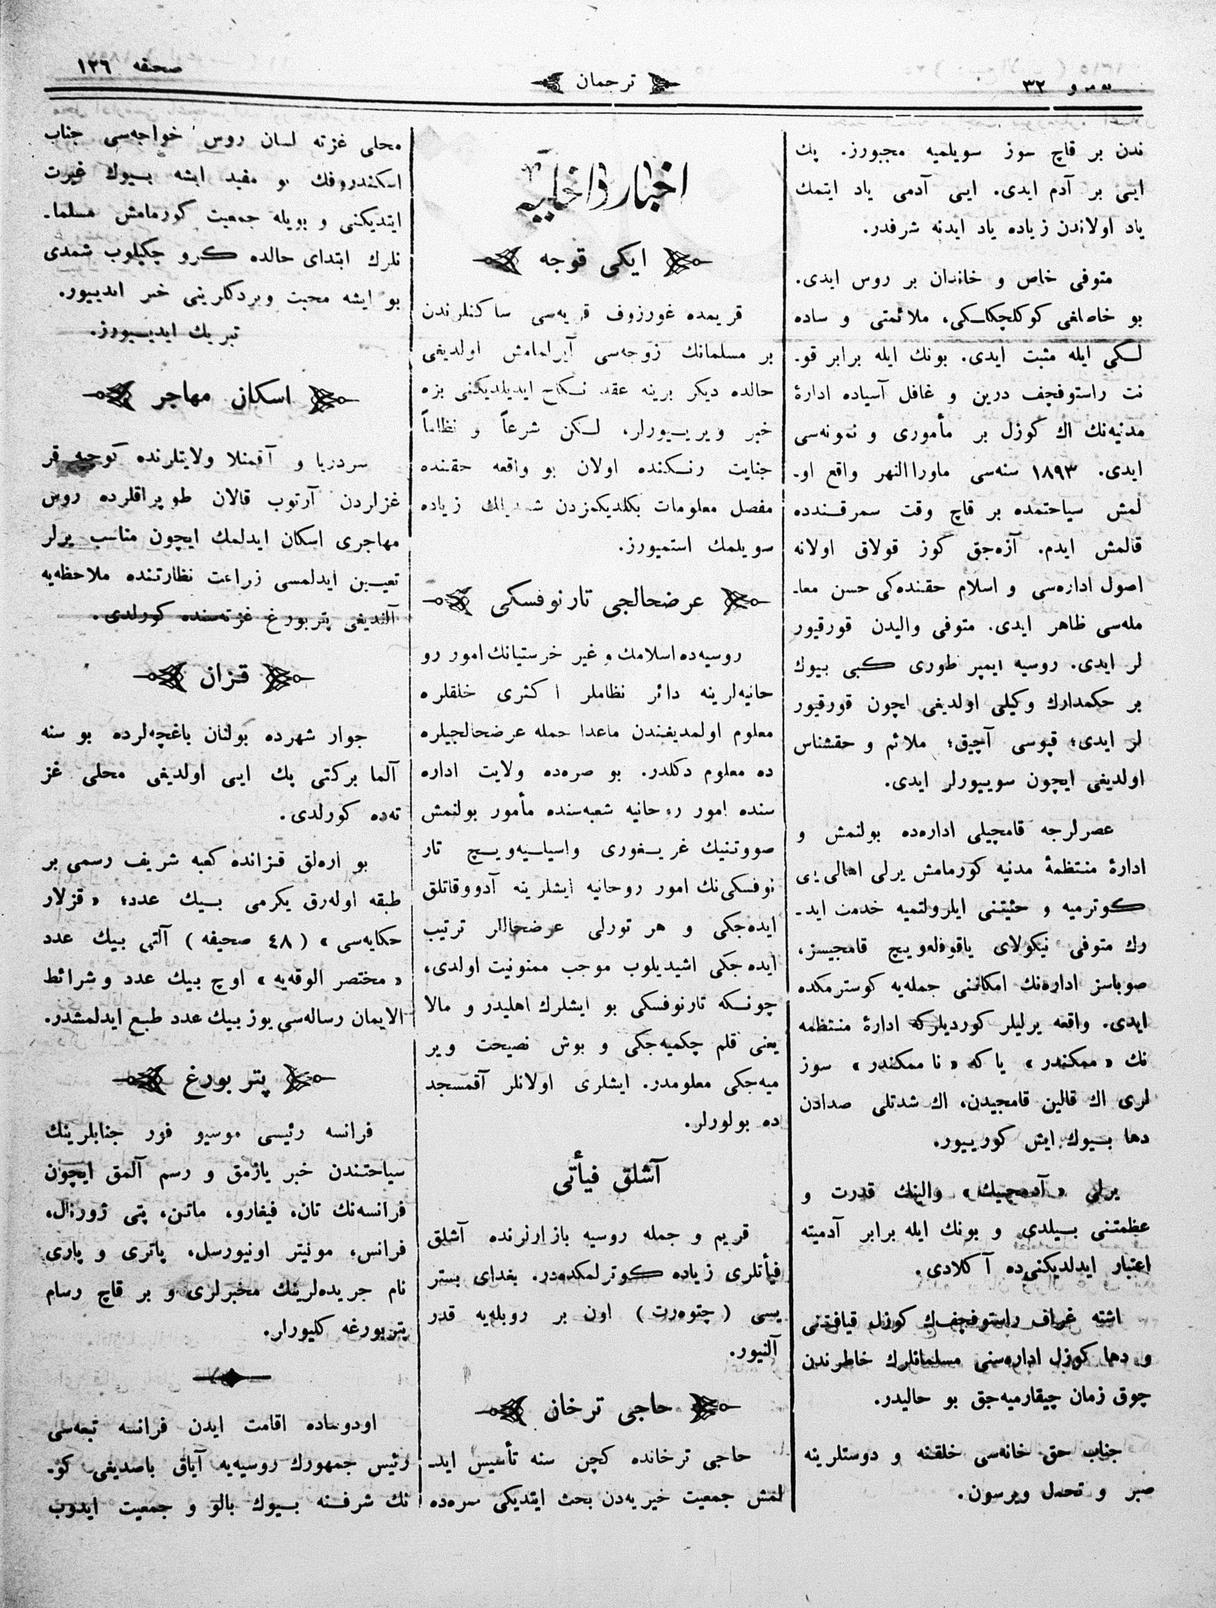 نومرو ٣٢
ترجمان
صحفه ١٢٦
ندن بر قاچ سوز سويلميه مجبورز. پك
ايى بر آدم ايدى. ايى آدمى ياد ايتمك
ياد اولاندن زياده ياد ايدنه شرفدر.
متوفى خاص و خاندان بر روس ايدى.
بو خاصلغى كوكلچكلكى، ملائمتى و ساده
لكى ايله مثبت ايدى. بونك ايله برابر قو-
نت راستوفچف درين و غافل آسياده ادارۀ
مدنيه‌نك اك كوزل بر مأمورى و نمونه‌سى
ايدى. ١٨٩٣ سنه‌سى ماوراالنهر واقع او-
لمش سياحتمده بر قاچ وقت سمرقندده
قالمش ايدم. آزه‌جق كوز قولاق اولانه
اصول اداره‌سى و اسلام حقنده‌كى حسن معا-
مله‌سى ظاهر ايدى. متوفى واليدن قورقيور
لر ايدى. روسيه ايمپر طورى كبى بيوك
بر حكمدارك وكيلى اولديغى ايچون قورقيور
لر ايدى؛ قپوسى آچيق؛ ملائم و حقشناس
اولديغى ايچون سوييورلر ايدى.
عصرلرجه قامچيلى اداره‌ده بولنمش و
ادارۀ منتظمۀ مدنيه كورمامش يرلى اهالى يى
كوترميه و حئيتنى ايلرولتميه خدمت ايد-
رك متوفى نيكولاى ياقوفله‌ويچ قامچيسز،
صوپاسز اداره‌نك امكاننى جمله‌يه كوسترمكده
ايدى. واقعه يرليلر كورديلركه ادارۀ منتظمه
نك «ممكندر» يا كه «نا ممكندر» سوز
لرى اك قالين قامچيدن، اك شدتلى صدادن
دها بيوك ايش كورييور.
يرلى «آدمجيك» والينك قدرت و
عظمتنى بيلدى و بونك ايله برابر آدميته
اعتبار ايدلديكنى‌ده آكلادى.
اشته غراف راستوفچف‌ك كوزل قيافتنى
و دها كوزل اداره‌سنى مسلمانلرك خاطرندن
چوق زمان چيقارميه‌جق بو حاليدر.
جناب حق خانه‌سى خلقنه و دوستلرينه
صبر و تحمل ويرسون.
اخبار داخليه
ايكى قوجه
قريمده غورزوف قريه‌سى ساكنلرندن
بر مسلمانك زوجه‌سى آيرلمامش اولديغى
حالده ديكر برينه عقد نكاح ايديلديكنى بزه
خبر ويرييورلر، لكن شرعاً و نظاماً
جنايت رنكنده اولان بو واقعه حقنده
مفصل معلومات بكلديكمزدن شمديلك زياده
سويلمك استميورز.
عرضحالجى تارنوفسكى
روسيه‌ده اسلامك و غير خرستيانك امور رو
حانيه‌لرينه دائر نظاملر اكثرى خلقلره
معلوم اولمديغندن ماعدا جمله عرضحالجيلره
ده معلوم دكلدر. بو صره‌ده ولايت اداره
سنده امور روحانيه شعبه‌سنده مأمور بولنمش
صووتنيك غريغورى واسيليه‌ويچ تار
نوفسكى‌نك امور روحانيه ايشلرينه آدووقاتلق
ايده‌جكى و هر تورلى عرضحاللر ترتيب
ايده‌جكى اشيديلوب موجب ممنونيت اولدى،
چونكه تارنوفسكى بو ايشلرك اهليدر و مالا
يعنى قلم چكميه‌جكى و بوش نصيحت وير
ميه‌جكى معلومدر. ايشلرى اولانلر آقمسجد
ده بولورلر.
آشلق فيأتى
قريم و جمله روسيه بازارلرنده آشلق
فيأتلرى زياده كوترلمكده‌در. بغداى بستر
يسى (چتوه‌رت) اون بر روبله‌يه قدر
آلنيور.
حاجى ترخان
حاجى ترخانده كچن سنه تأسيس ايد-
لمش جمعيت خيريه‌دن بحث ايتديكى سره‌ده
محلى غزته لسان روس خواجه‌سى جناب
اسكندروفك بو مفيد ايشه بيوك غيرت
ايتديكنى و بويله جمعيت كورمامش مسلما-
نلرك ابتداى حالده كرو چكيلوب شمدى
بو ايشه محبت ويردكلرينى خبر ايدييور.
تبريك ايدييورز.
اسكان مهاجر
سردريا و آقمنلا ولايتلرنده كوچبه قر
غزلردن آرتوب قالان طوپراقلرده روس
مهاجرى اسكان ايدلمك ايچون مناسب يرلر
تعيين ايدلمسى زراعت نظارتنده ملاحظه‌يه
آلنديغى پتربورغ غزته‌سنده كورلدى.
قزان
جوار شهرده بولنان باغچه‌لرده بو سنه
آلما بركتى پك ايى اولديغى محلى غز
ته‌ده كورلدى.
بو ارەلق قزانده كعبه شريف رسمى بر
طبقه اوله‌رق يكرمى بيك عدد؛ «قزلار
حكايه‌سى» (٤٨ صحيفه) آلتى بيك عدد
«مختصر الوقه‌يه» اوچ بيك عدد و شرائط
الايمان رساله‌سى يوز بيك عدد طبع ايدلمشدر.
پتربورغ
فرانسه رئيسى موسيو فور جنابلرينك
سياحتندن خبر يازمق و رسم آلمق ايچون
فرانسه‌نك تان، فيغارو، ماتن، پتى ژورنال،
فرانس، مونيتر اونيورسل، پاترى و پارى
نام جريده‌لرينك مخبرلرى و بر قاچ رسام
پتربورغه كليورلر.
اودوساده اقامت ايدن فرانسه تبعه‌سى
رئيس جمهورك روسيه‌يه آياق باصديغى كو-
نك شرفنه بيوك بالو و جمعيت ايدوب